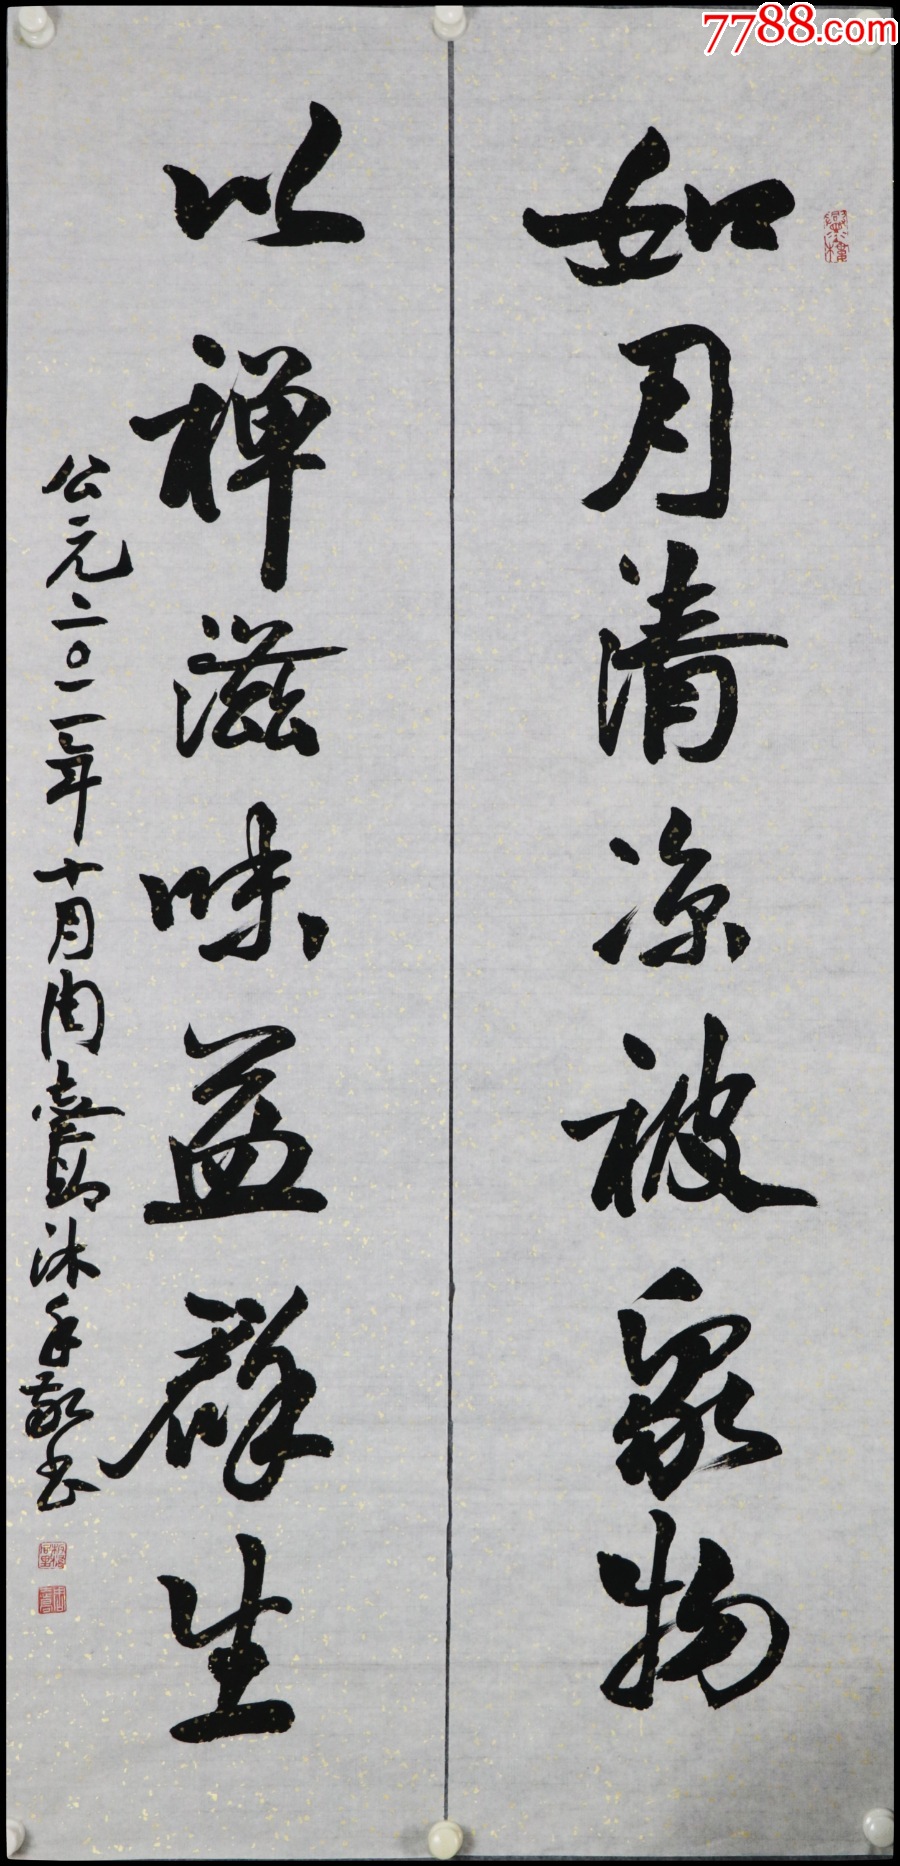 7788.com
如月清凉被众物
以禅滋味益群生
公元二〇一一年十月周慧珺沐手敬书